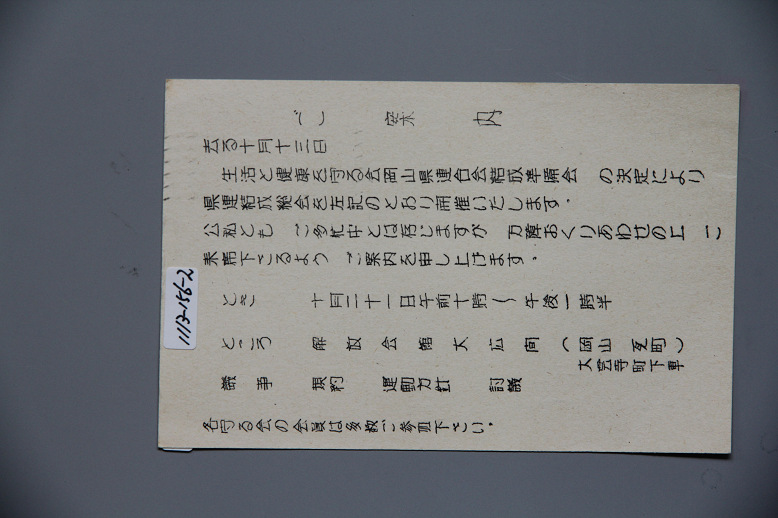 ご案内
去る十月十三日
生活と健康を守る会岡山県連合会結成準備会 の決定により
県連結成総会を左記のとおり開催いたします.
公私とも ご多忙中とは存じますが 万障おくりあわせの上 ご
来席下さるよう ご案内を申し上げます.
とき 十月二十一日午前十時〜午後一時半
ところ 解放会館大広間(岡山 町)
大雲寺町下車
議事 規約 運動方針 討議
各守る会の会員は多数ご参加下さい.
1113-156-2